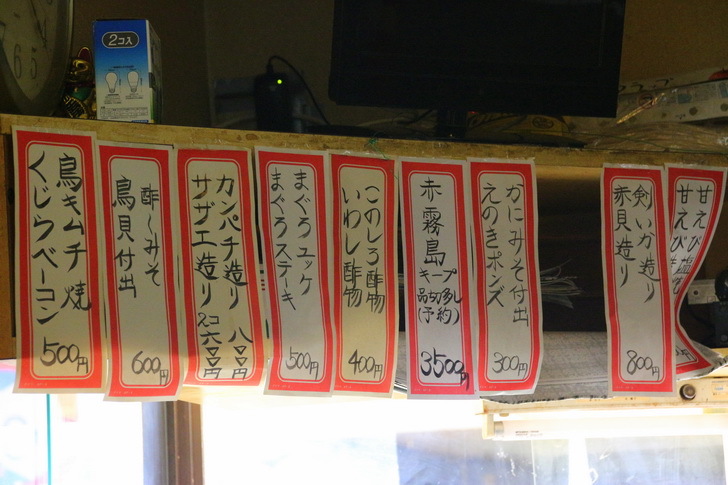 2コ入
鳥キムチ焼
くじらベーコン
500円
酢〜みそ
鳥貝付出
600円
カンパチ造り 八〇〇円
サザエ造り 2コ 六〇〇円
まぐろユッケ
まぐろステーキ
500円
このしろ酢物
いわし酢物
400円
赤霧島
キープ
品切れ多し
(予約)
3500円
かにみそ付出
えのきポンズ
300円
剣いか造り
赤貝造り
800円
甘えび
甘えび塩